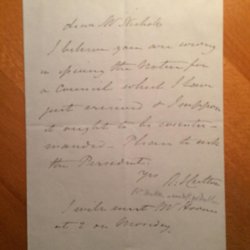 dear Mr Nichols
I believe you are wrong
in issuing the Notice for
a Council which I have
just received & I suppose
it ought to be counter-
manded – Please to ask
the President
Yrs
I will meet Mr
at 2 on Monday